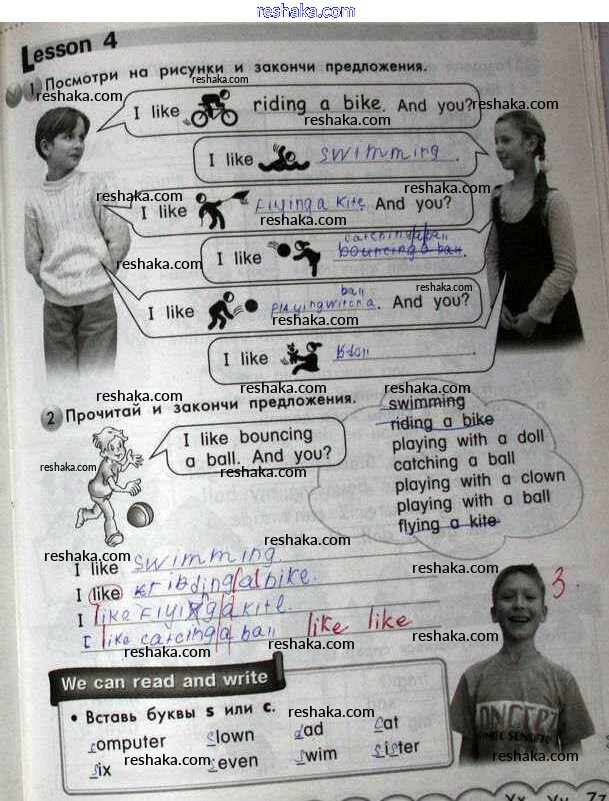 reshaka.com
Lesson 4
1 Посмотри на рисунки и закончи предложения.
reshaka.com
reshaka.com
I like riding a bike. And you?
reshaka.com
reshaka.com
I like swimming.
reshaka.com
reshaka.com
I like Flying a kite. And you?
reshaka.com
catching a ball
I like bouncing a ball.
reshaka.com
reshaka.com
ball
I like playing with a. And you?
reshaka.com
I like
reshaka.com
reshaka.com
reshaka.com
2 Прочитай и закончи предложения.
swimming
riding a bike
playing with a doll
catching a ball
playing with a clown
playing with a ball
flying a kite
I like bouncing
a ball. And you?
reshaka.com
reshaka.com
reshaka.com
reshaka.com
I like swimming
reshaka.com
I like a bike.
reshaka.com
3.
I like Flying a kite.
I like catcing a ball like like
reshaka.com
reshaka.com
We can read and write
• Вставь буквы s или c.
reshaka.com
computer slown dad cat
reshaka.com
six seven swim sister
reshaka.com
reshaka.com
CONCEPT
Xx Yy 77